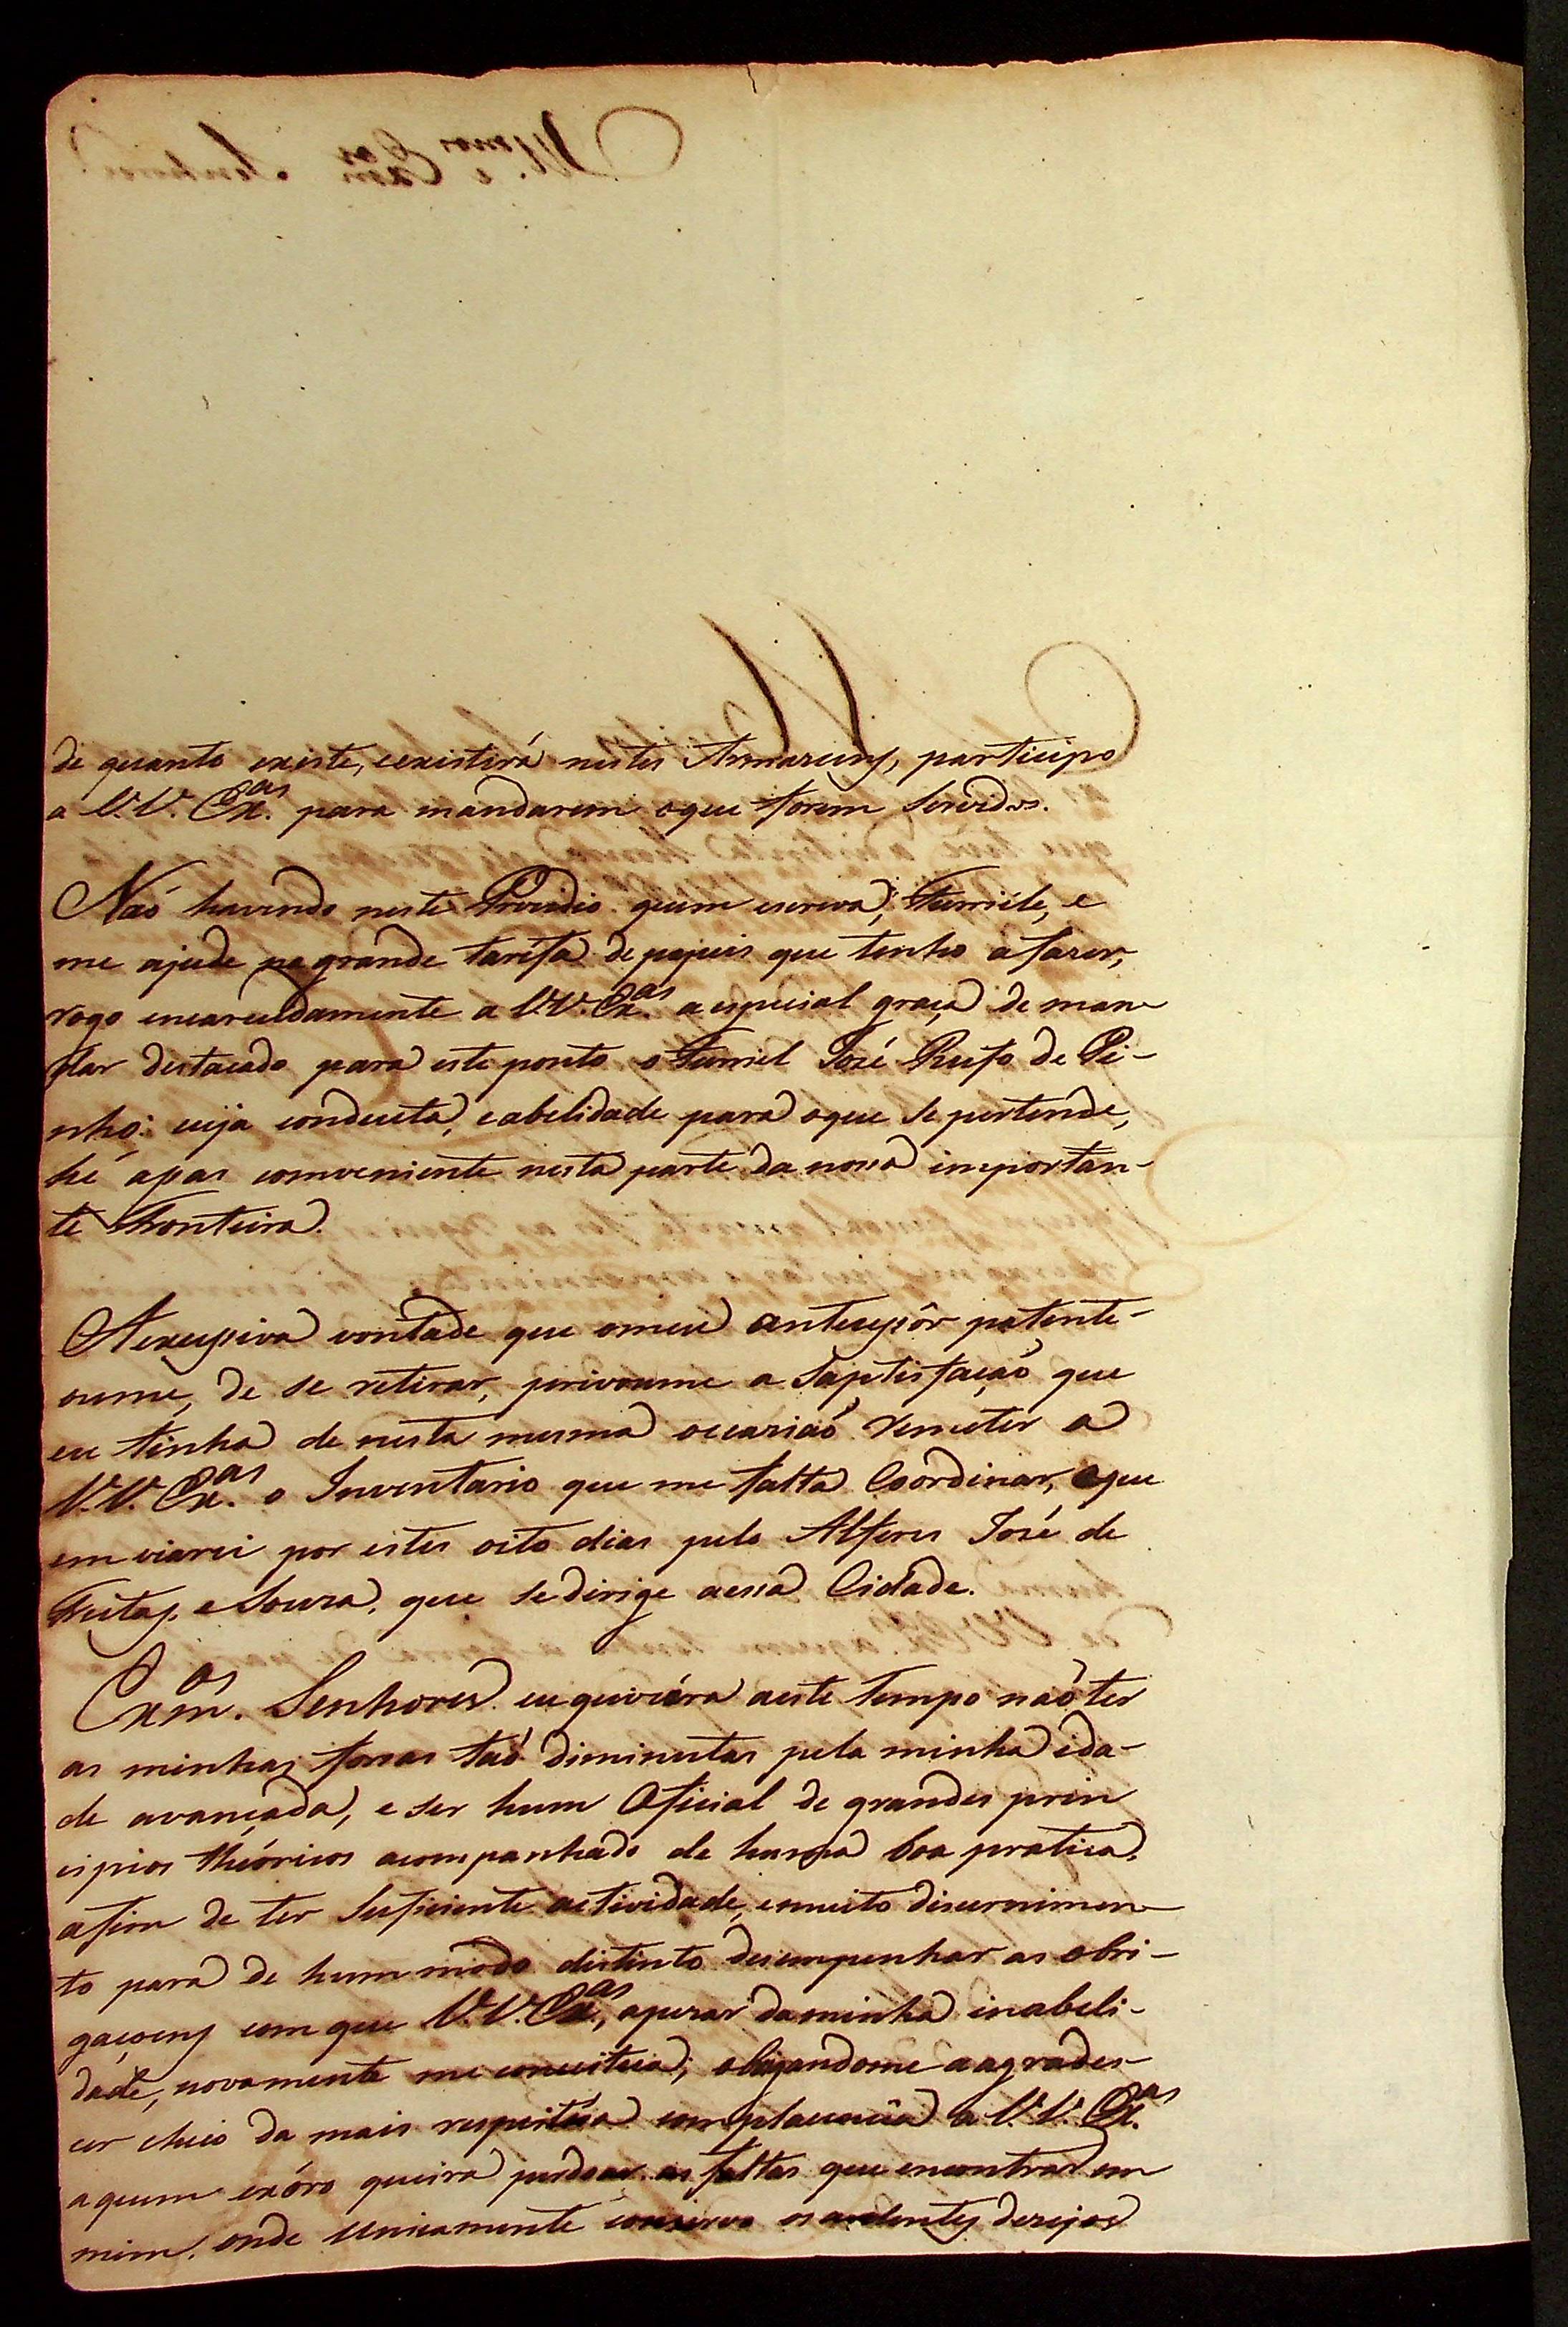 de quanto existe, eexistirá nestes Armazeins, participo
a V.V. Ex.as para mandarem oque forem servidos.
Naõ havendo neste Prezidio quem escreva, Furriéle, e
me ajude na grande tarifa de papeis que tenho a fazer,
rogo encarecidamente a V.V. Ex.as a especial graça de man-
dar destacado para este ponto o Furriel José Rufo de Pi-
nho; cuja conducta, eabelidade para oque se pertende,
hé apar comveniente nesta parte da nossa importan-
te Fronteira.
A excessiva vontade que omeu antecessôr patente-
oume, de se retirar, privoume a Saptisfaçaõ que
eu tinha de nesta mesma occaziaõ remeter a
V.V. Ex.as o Inventario que me falta Coordinar, eque
em viarei por estes oito dias pelo Alferes José de
Freitas e Souza, que se dirige aessa Cidade.
Exm.os Senhores eu quizéra aeste tempo naõ ter
as minhas forsas taõ diminutas pela minha ida-
de avançada, e ser hum Oficial de grandes prin
cipios théoricos acompanhado de huma boa pratica,
afim de ter Suficiente actividade, emuito discernimen-
to para de hum modo distinto desempenhar as obri-
gaçoens com que V.V. Ex.as, apezar daminha inabeli-
dade, novamente me conceitua; obrigandome aagrades-
cer cheio da mais respeitósa complacencia a V.V. Ex.as
aquem exóro queira perdoar as faltas que encontrar em
mim, onde unicamente conservo os ardentes dezejos